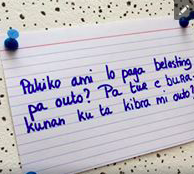 Pakiko ami lo paga belasting
pa outo? Pa tur e bura-
kunan ku ta kibra mi outo?